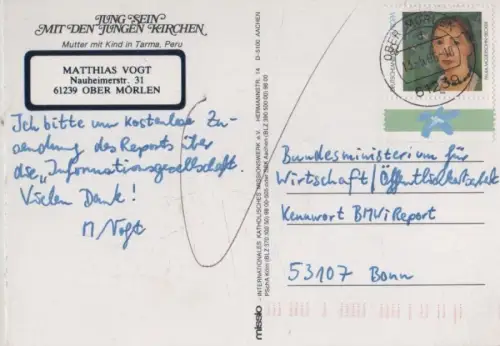 JUNG SEIN
MIT DEN JUNGEN KIRCHEN
Mutter mit Kind in Tarma, Peru
MATTHIAS VOGT
Nauheimerstr. 31
61239 OBER MÖRLEN
Ich bitte um kostenlose Zu-
sendung des Reports über
die „Informationsgesellschaft.
Vielen Dank!
M Vogt
missio - INTERNATIONALES KATHOLISCHES MISSIONSWERK e.V. HERMANNSTR. 14 D-5100 AACHEN
OBER MÖRL
61239
Bundesministerium für
Wirtschaft/Öffentlichkeitsarbeit
Kennwort BMWi Report
53107 Bonn